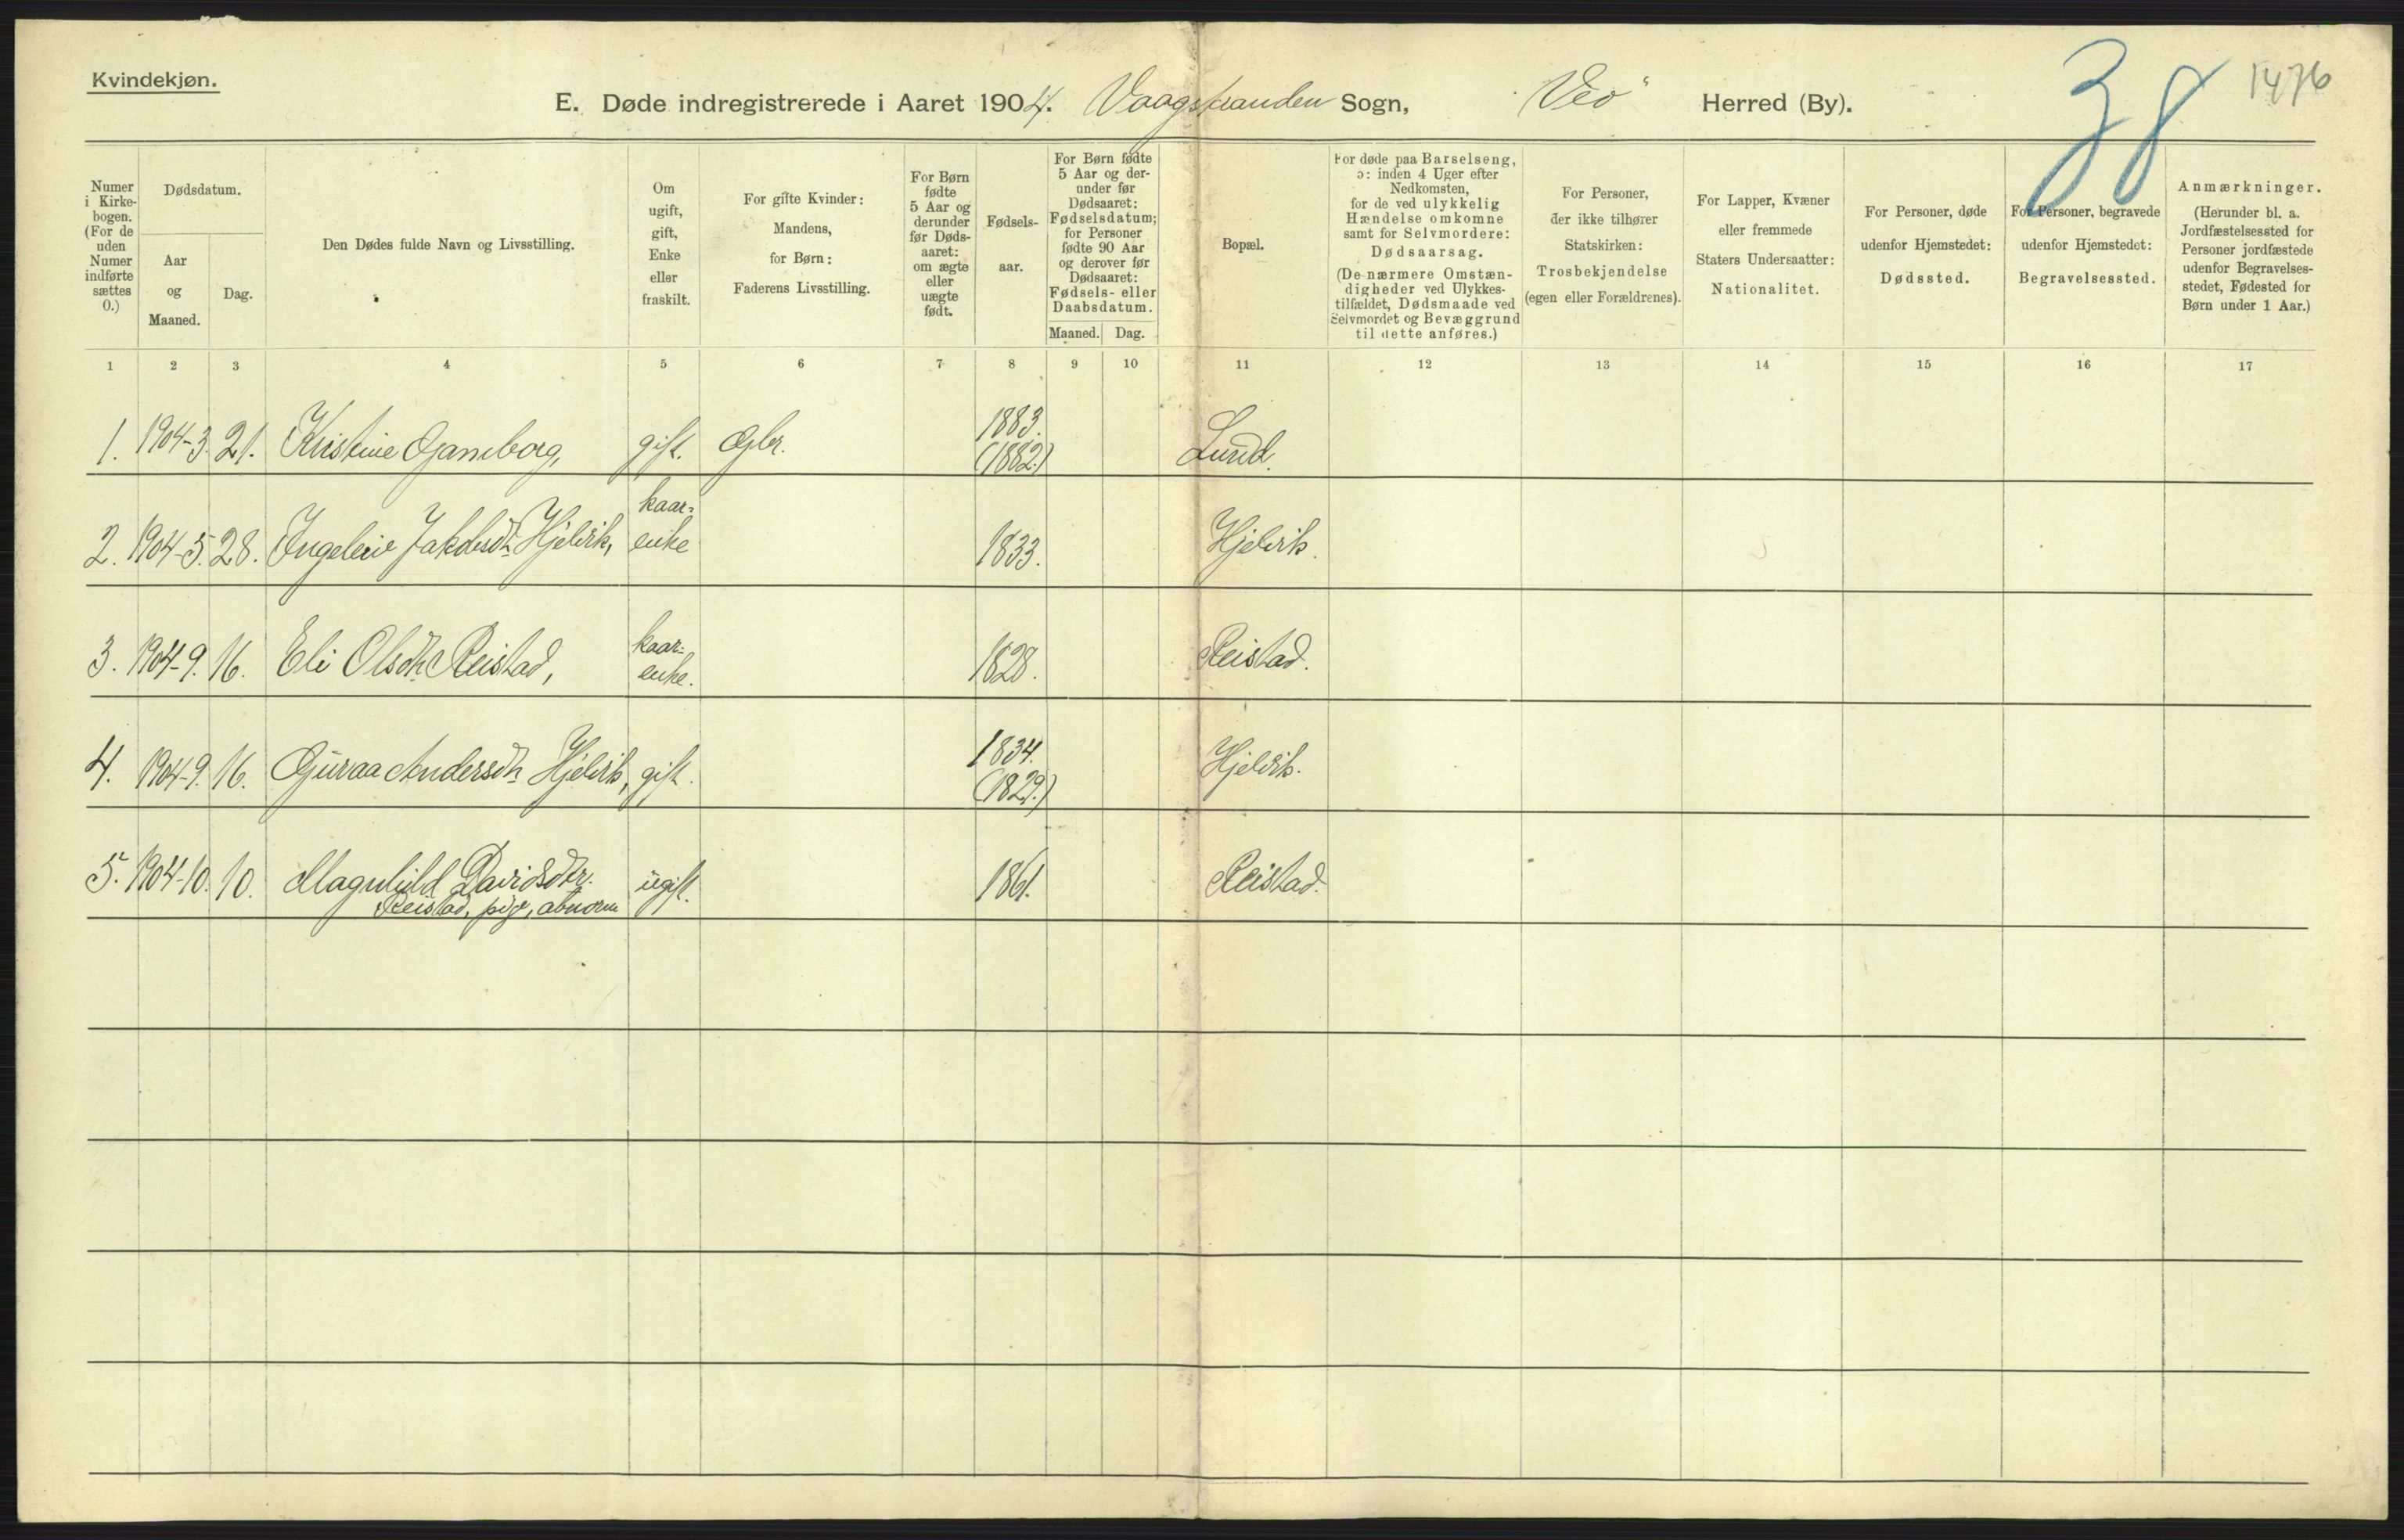 Kvindekjøn.
1476
38
E. Døde indregistrerede i Aaret 1904. Vaagstranden Sogn, Veø Herred (By).
Numer i Kirke-bogen. (For de uden Numer indførte sættes 0.)
Dødsdatum.
Aar og Maaned.
Dag.
Den Dødes fulde Navn og Livsstilling.
Om ugift, gift, Enke eller fraskilt.
For gifte Kvinder: Mandens, for Børn: Faderens Livsstilling.
For Børn fødte 5 Aar og derunder før Døds-aaret: om ægte eller uægte født.
Fødsels-aar.
For Børn fødte 5 Aar og der-under før Dødsaaret: Fødselsdatum; for Personer fødte 90 Aar og derover før Dødsaaret: Fødsels- eller Daabsdatum.
Maaned. Dag.
Bopæl.
For døde paa Barselseng, ɔ: inden 4 Uger efter Nedkomsten, for de ved ulykkelig Hændelse omkomne samt for Selvmordere: Dødsaarsag. (De nærmere Omstæn-digheder ved Ulykkes-tilfældet, Dødsmaade ved Selvmordet og Bevæggrund til dette anføres.)
For Personer, der ikke tilhører Statskirken: Trosbekjendelse (egen eller Forældrenes).
For Lapper, Kvæner eller fremmede Staters Undersaatter: Nationalitet.
For Personer, døde udenfor Hjemstedet: Dødssted.
For Personer, begravede udenfor Hjemstedet: Begravelsessted.
Anmærkninger. (Herunder bl. a. Jordfæstelsessted for Personer jordfæstede udenfor Begravelses-stedet, Fødested for Børn under 1 Aar.)
1 2 3 4 5 6 7 8 9 10 11 12 13 14 15 16 17
1. 1904-3. 21. Kristine Gamborg, gift. Gbr. 1883. (1882.) Lund.
2. 1904-5. 28. Ingeleiv Jakobsdtr Hjelvik, kaar-enke 1833. Hjelvik.
3. 1904-9. 16. Eli Olsdtr Reistad, kaar-enke. 1828. Reistad.
4. 1904-9. 16. Guraa Andersdtr Hjelvik, gift. 1834. (1829.) Hjelvik.
5. 1904-10. 10. Magnhild Davidsdtr. ugift. 1861. Reistad.
Reistad, pige, abnorm